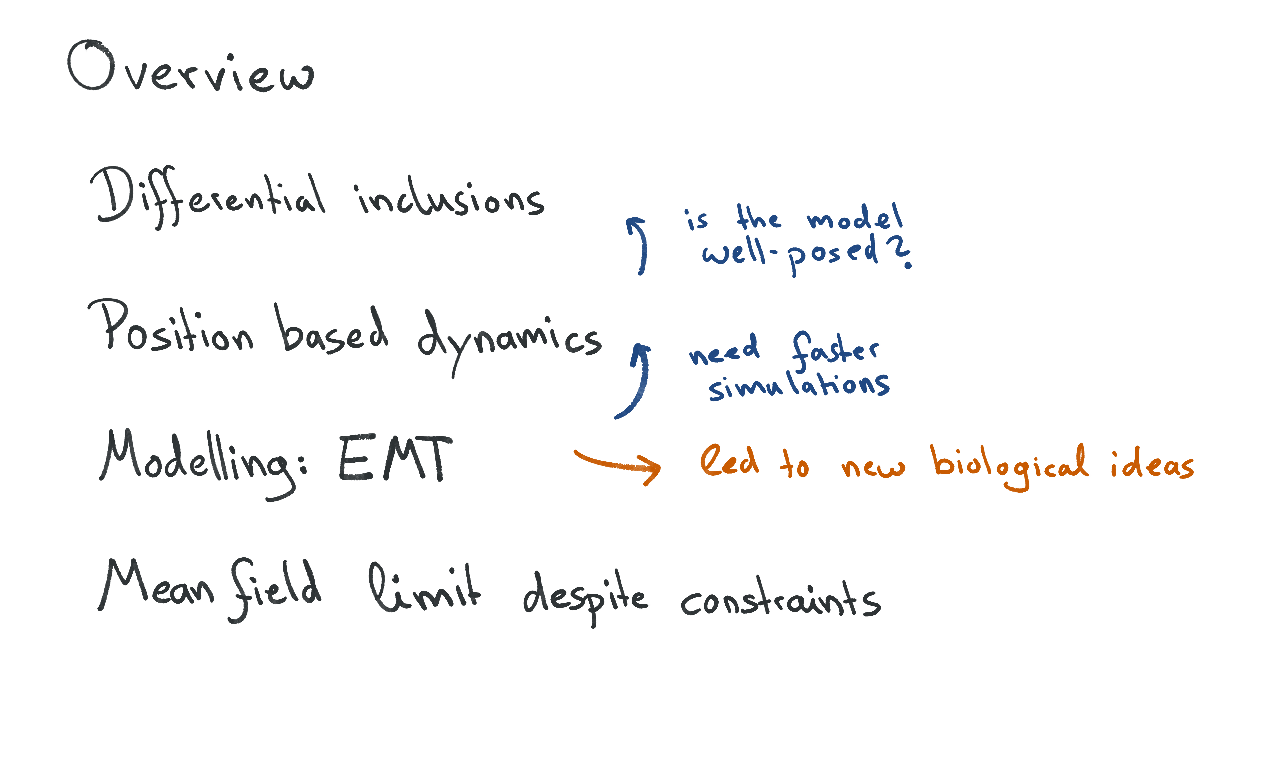 Overview
Differential inclusions
is the model
well-posed?
Position based dynamics
need faster
simulations
Modelling: EMT
led to new biological ideas
Mean field limit despite constraints